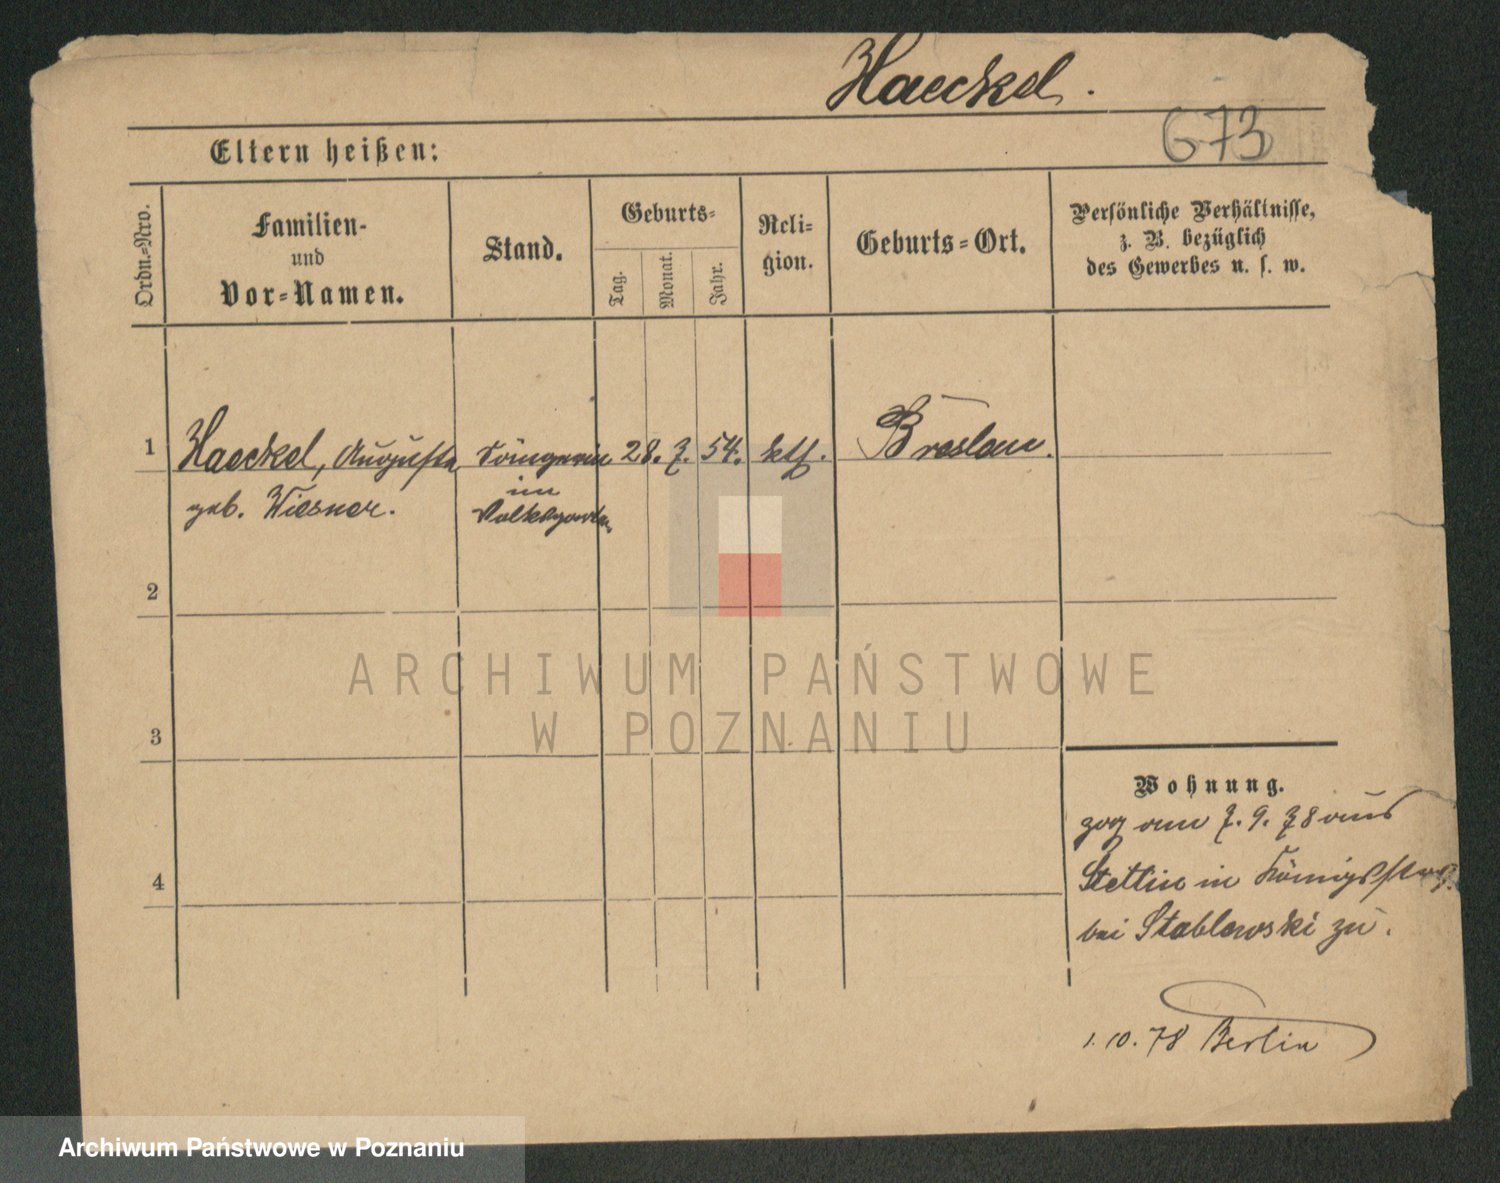 Haeckel.
673
Eltern heißen:
Ordn.-Nro.
Familien-
und
Vor-Namen.
Stand.
Geburts-
Tag.
Monat.
Jahr.
Reli-
gion.
Geburts-Ort.
Persönliche Verhältnisse,
z. B. bezüglich
des Gewerbes u. s. w.
1
Haeckel, Auguste
geb. Wiesner.
Sängerin
im
Volksgarten
28. 7. 54.
kth.
Breslau.
2
3
4
Wohnung.
zog am 7. 9. 78 aus
Stettin in Königsstraß.
bei Stablewski zu.
1. 10. 78 Berlin
ARCHIWUM PAŃSTWOWE
W POZNANIU
Archiwum Państwowe w Poznaniu